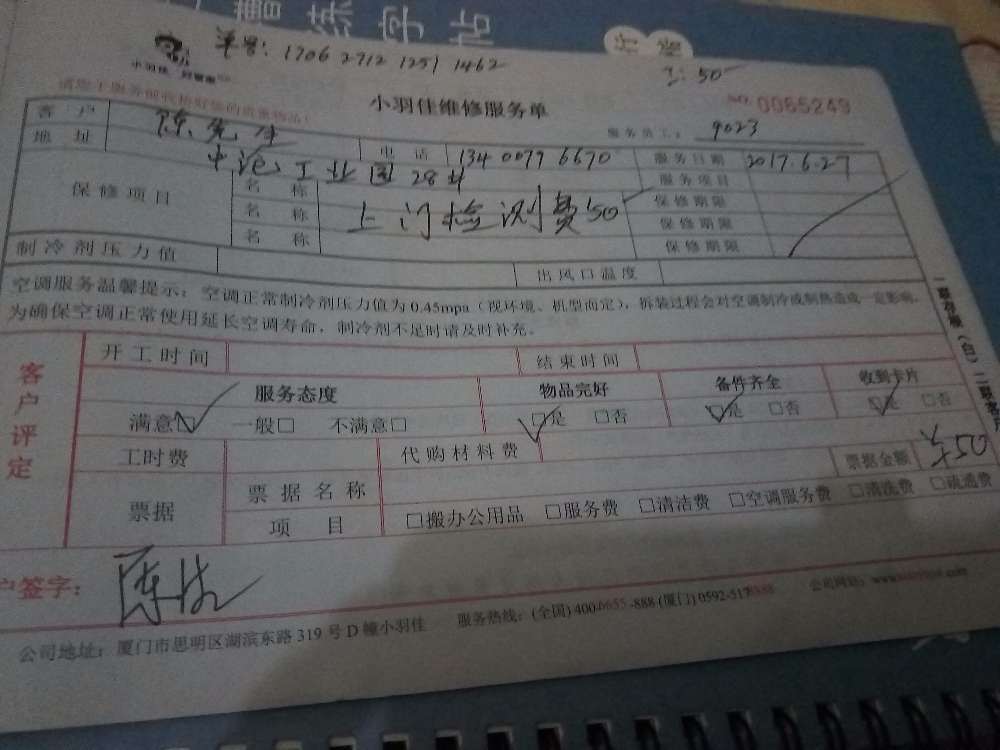 曹
练字帖
单号: 1706 2712 1251 1462
工: 50
小羽佳 好管家
小羽佳维修服务单
NO. 0065249
服务员工: 9023
客户 陈先生 电话 134 0077 6670 服务日期 2017.6.27
地址 中沧工业园28# 服务项目
保修项目 名称 保修期限
名称 上门检测费50 保修期限
名称 保修期限
制冷剂压力值 出风口温度
空调服务温馨提示: 空调正常制冷剂压力值为0.45mpa (视环境、机型而定), 拆装过程会对空调制冷或制热造成一定影响,
为确保空调正常使用延长空调寿命, 制冷剂不足时请及时补充。
客户评定
开工时间 结束时间
服务态度 物品完好 备件齐全 收到卡片
满意☑ 一般□ 不满意□ ☑是 □否 ☑是 □否 ☑是 □否
工时费 代购材料费 票据金额 ¥50
票据 票据名称
项目 □搬办公用品 □服务费 □清洁费 □空调服务费 □清洗费 □疏通费
户签字:
公司地址: 厦门市思明区湖滨东路319号D幢小羽佳 服务热线: (全国) 400-6655-888 (厦门) 0592-517 公司网址: www.
一联存根 (白) 二联客户